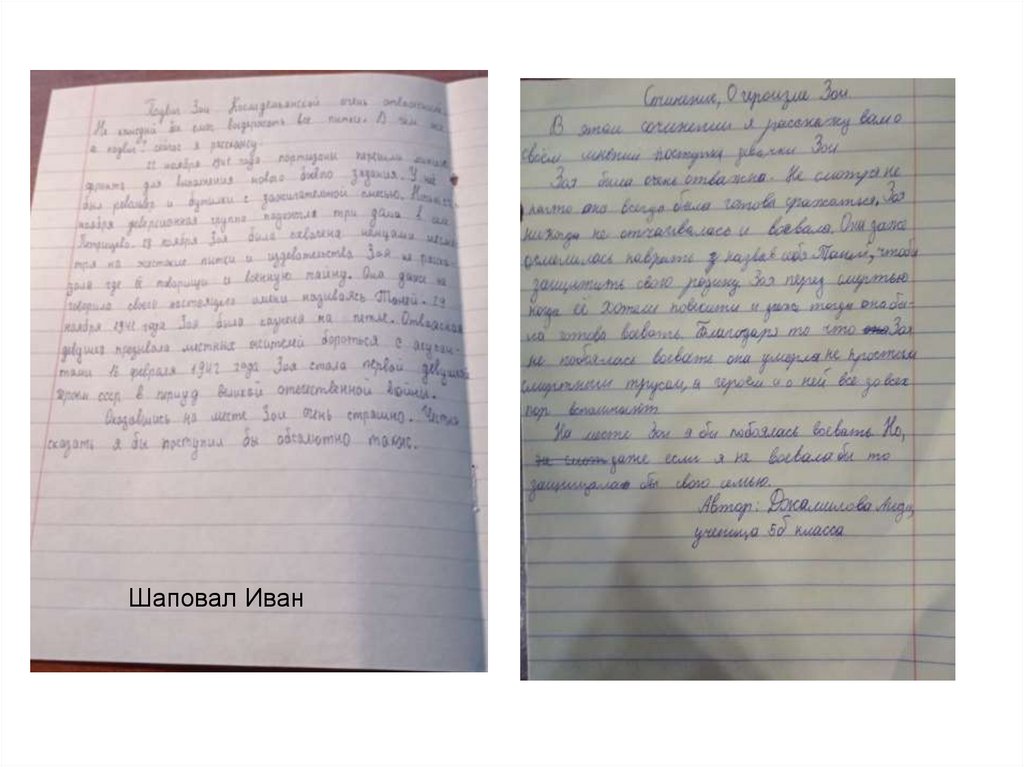 Подвиг Зои Космодемьянской очень отважный.
Не каждый бы смог выдержать все пытки. В чем же
а подвиг? сейчас я расскажу.
22 ноября 1941 года партизаны перешли линию
фронта для выполнения нового боево задания. У нее
был револьвер и бутылки с зажигательной смесью.
ноября диверсионная группа подожгла три дома в
Петрищево. 28 ноября Зоя была схвачена немцами
тря на жестокие пытки и издевательства Зоя не расска-
зала где её товарищи и военную тайну. Она даже не
говорила своего настоящего имени называясь Таней. 29
ноября 1941 года Зоя была казнена на петле. Отважная
девушка призывала местных жителей бороться с окупан-
тами 16 февраля 1942 года Зоя стала первой девушкой
героем ссср в период великой отечественной войны.
Оказавшись на месте Зои очень страшно. Честно
сказать я бы поступил бы обсалютно также.
Шаповал Иван
Сочинение, О героизме Зои.
В этом сочинении я расскажу вам о
своём мнении поступка девочки Зои
Зоя была очень отважна. Не смотря не
на что она всегда была готова сражаться. Зоя
никогда не отчаивалась и воевала. Она даже
осмелилась наврать назвав себя Таней, чтобы
защитить свою родину. Зоя перед смертью
когда её хотели повесить и даже тогда она бы-
ла готова воевать. Благодаря то что она Зоя
не побоялась воевать она умерла не простым
смертным трусом, а героем и о ней все до сех
пор вспоминают
На месте Зои я бы побоялась воевать. Но,
даже если я не воевала бы то
защищала бы свою семью.
Автор: Джамилова
ученица 5б класса